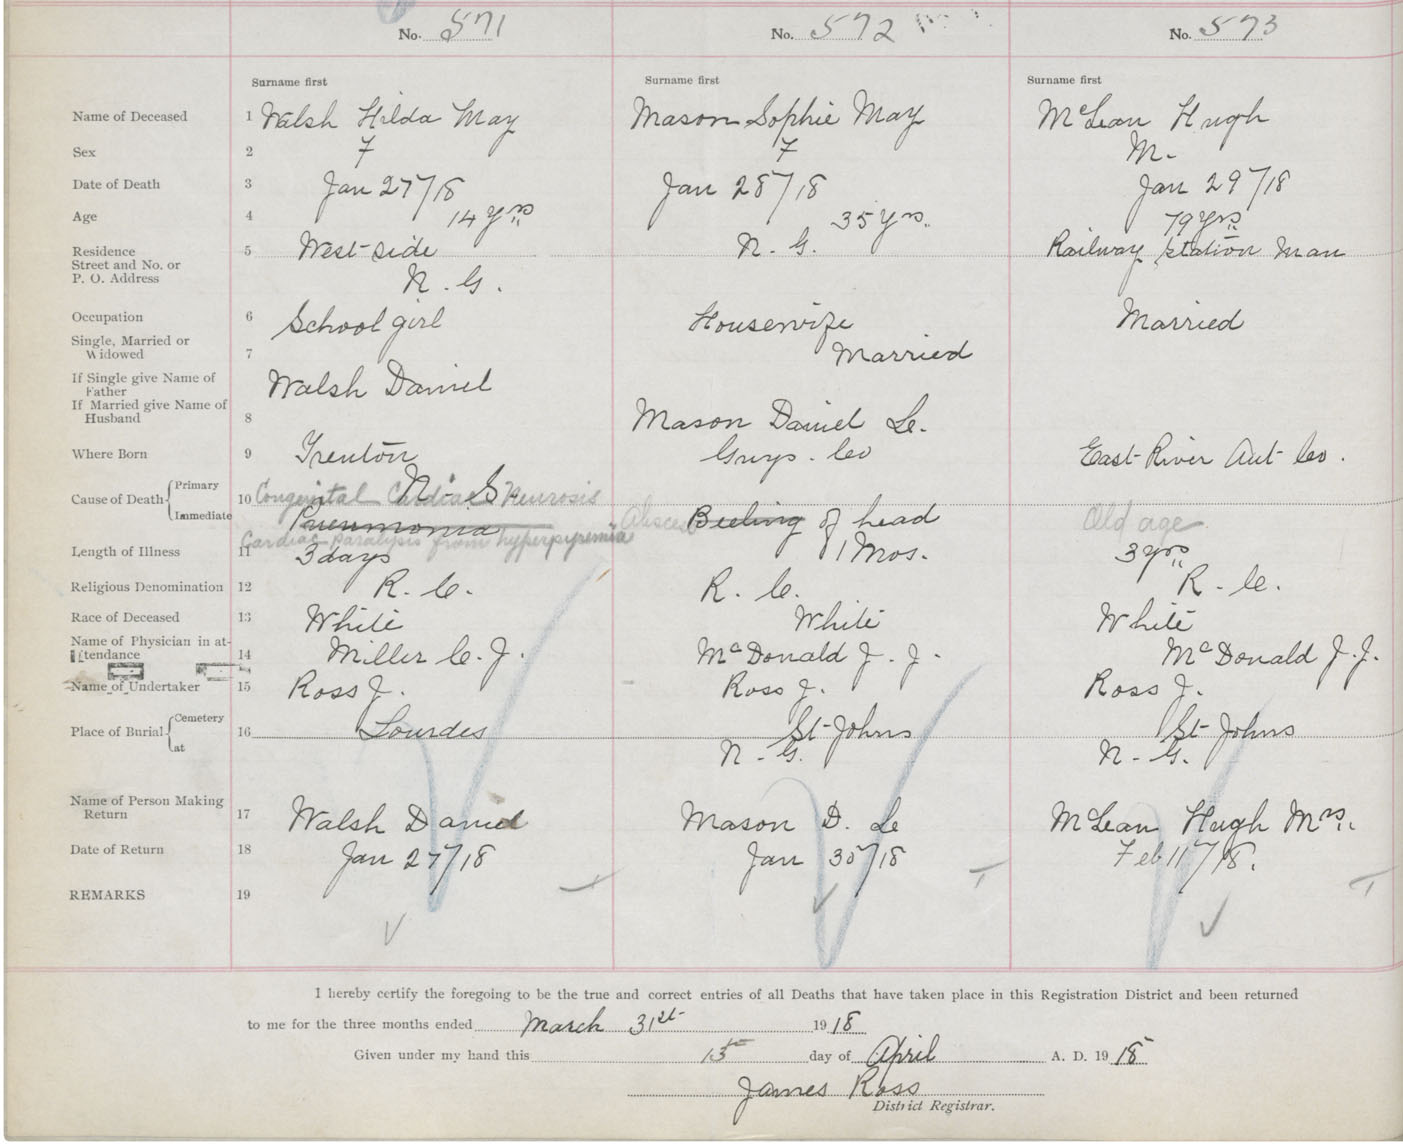 No. 571 No. 572 No. 573
Surname first Surname first Surname first
Name of Deceased 1 Walsh Hilda May Mason Sophie May McLean Hugh
Sex 2 F F M.
Date of Death 3 Jan 27/18 Jan 28/18 Jan 29/18
Age 4 14 yrs 35 yrs. 79 yrs
Residence 5 West-side N. G. Railway station Man
Street and No. or
P. O. Address N. G.
Occupation 6 School girl Housewife Married
Single, Married or
Widowed 7 Married
If Single give Name of
Father Walsh Daniel
If Married give Name of
Husband 8 Mason Daniel Le.
Where Born 9 Trenton Guys. Co East River Ant Co.
N. S.
Cause of Death Primary 10 Congenital Cardiac Neurosis
Immediate Pneumonia Abscess Beeling of head Old age
Cardiac Paralysis from hyperpyremia
Length of Illness 11 3 days 1 Mos. 3 yrs
Religious Denomination 12 R. C. R. C. R. C.
Race of Deceased 13 White White White
Name of Physician in at-
tendance 14 Miller C. J. McDonald J. J. McDonald J. J.
Name of Undertaker 15 Ross J. Ross J. Ross J.
Place of Burial Cemetery 16 Lourdes St-Johns St-Johns
at N. G. N. G.
Name of Person Making
Return 17 Walsh Daniel Mason D. Le McLean Hugh Mrs.
Date of Return 18 Jan 27/18 Jan 30/18 Feb 11/18.
REMARKS 19
I hereby certify the foregoing to be the true and correct entries of all Deaths that have taken place in this Registration District and been returned
to me for the three months ended March 31st 1918
Given under my hand this 15th day of April A. D. 1918
James Ross
District Registrar.